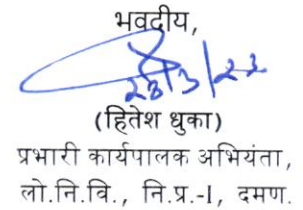 भवदीय,
23/3/22
(हितेश धुका)
प्रभारी कार्यपालक अभियंता,
लो.नि.वि., नि.प्र.-I, दमण.